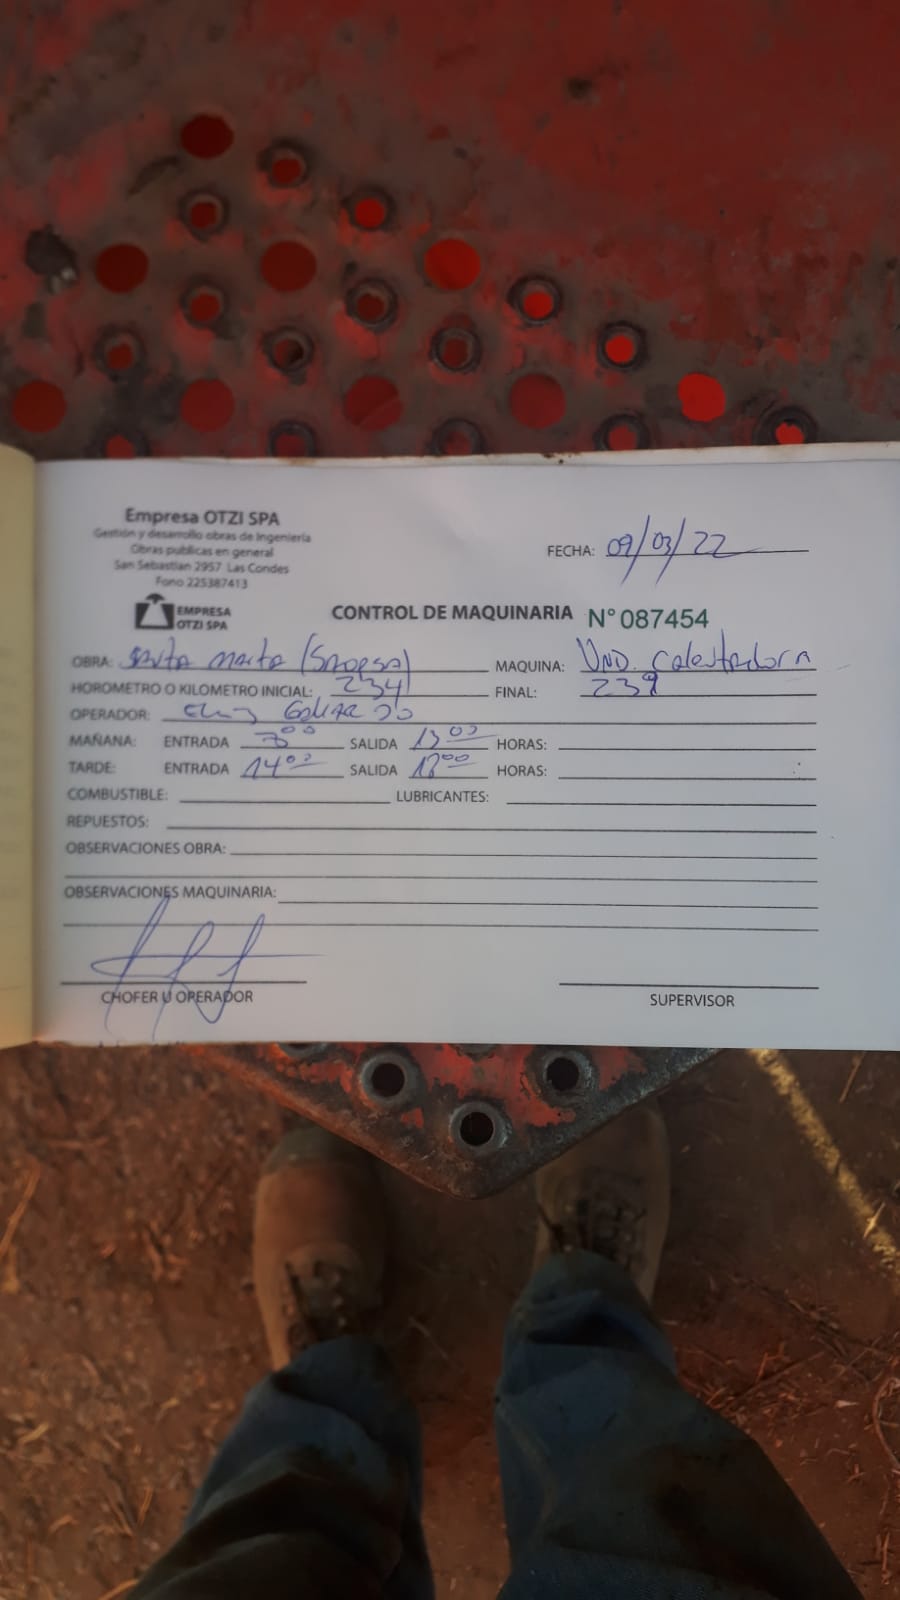 Empresa OTZI SPA
Gestión y desarrollo obras de Ingeniería
Obras publicas en general
San Sebastian 2957 Las Condes
Fono 225387413
EMPRESA
OTZI SPA
FECHA: 09/03/22
CONTROL DE MAQUINARIA N° 087454
OBRA: Santa Marta MAQUINA: UND.
HOROMETRO O KILOMETRO INICIAL: 234 FINAL: 239
OPERADOR:
MAÑANA: ENTRADA SALIDA 13 00 HORAS:
TARDE: ENTRADA 14 00 SALIDA 18 00 HORAS:
COMBUSTIBLE: LUBRICANTES:
REPUESTOS:
OBSERVACIONES OBRA:
OBSERVACIONES MAQUINARIA:
CHOFER U OPERADOR SUPERVISOR